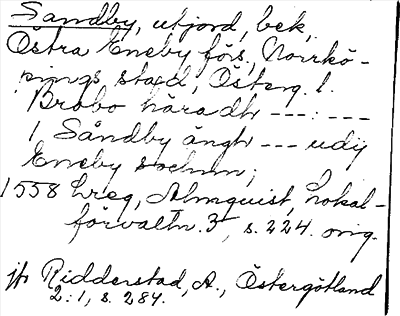 Sandby, utjord, bek.
Östra Eneby förs., Norrkö-
pings stad, Österg. l.
Brobo häradh ---:---
1 Såndby ängh --- udij
Eneby sochnn;
1558 hreg, Almquist, Lokal-
förvaltn. 3, s. 224. orig.
jfr Ridderstad, A., Östergötland
2:1, s. 284.